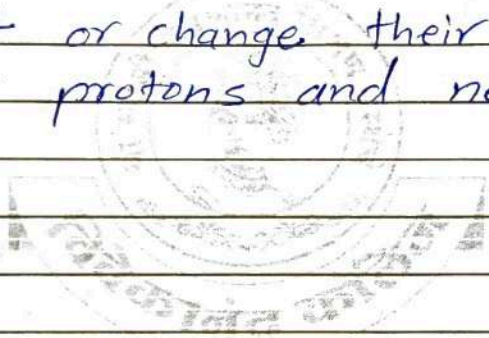 or change their
protons and ne